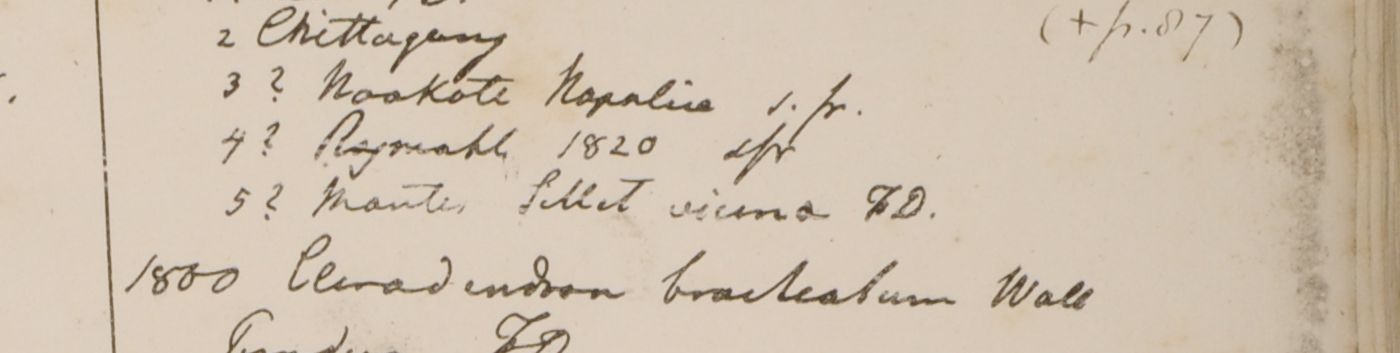 (+ p. 87)
2 Chittagong
3 ? Noakote Napalia s. fr.
4 ? Rajmahl 1820 sfr
5 ? Montes Sillet vicina FD.
1800 Clerodendron bracteatum Wall
FD